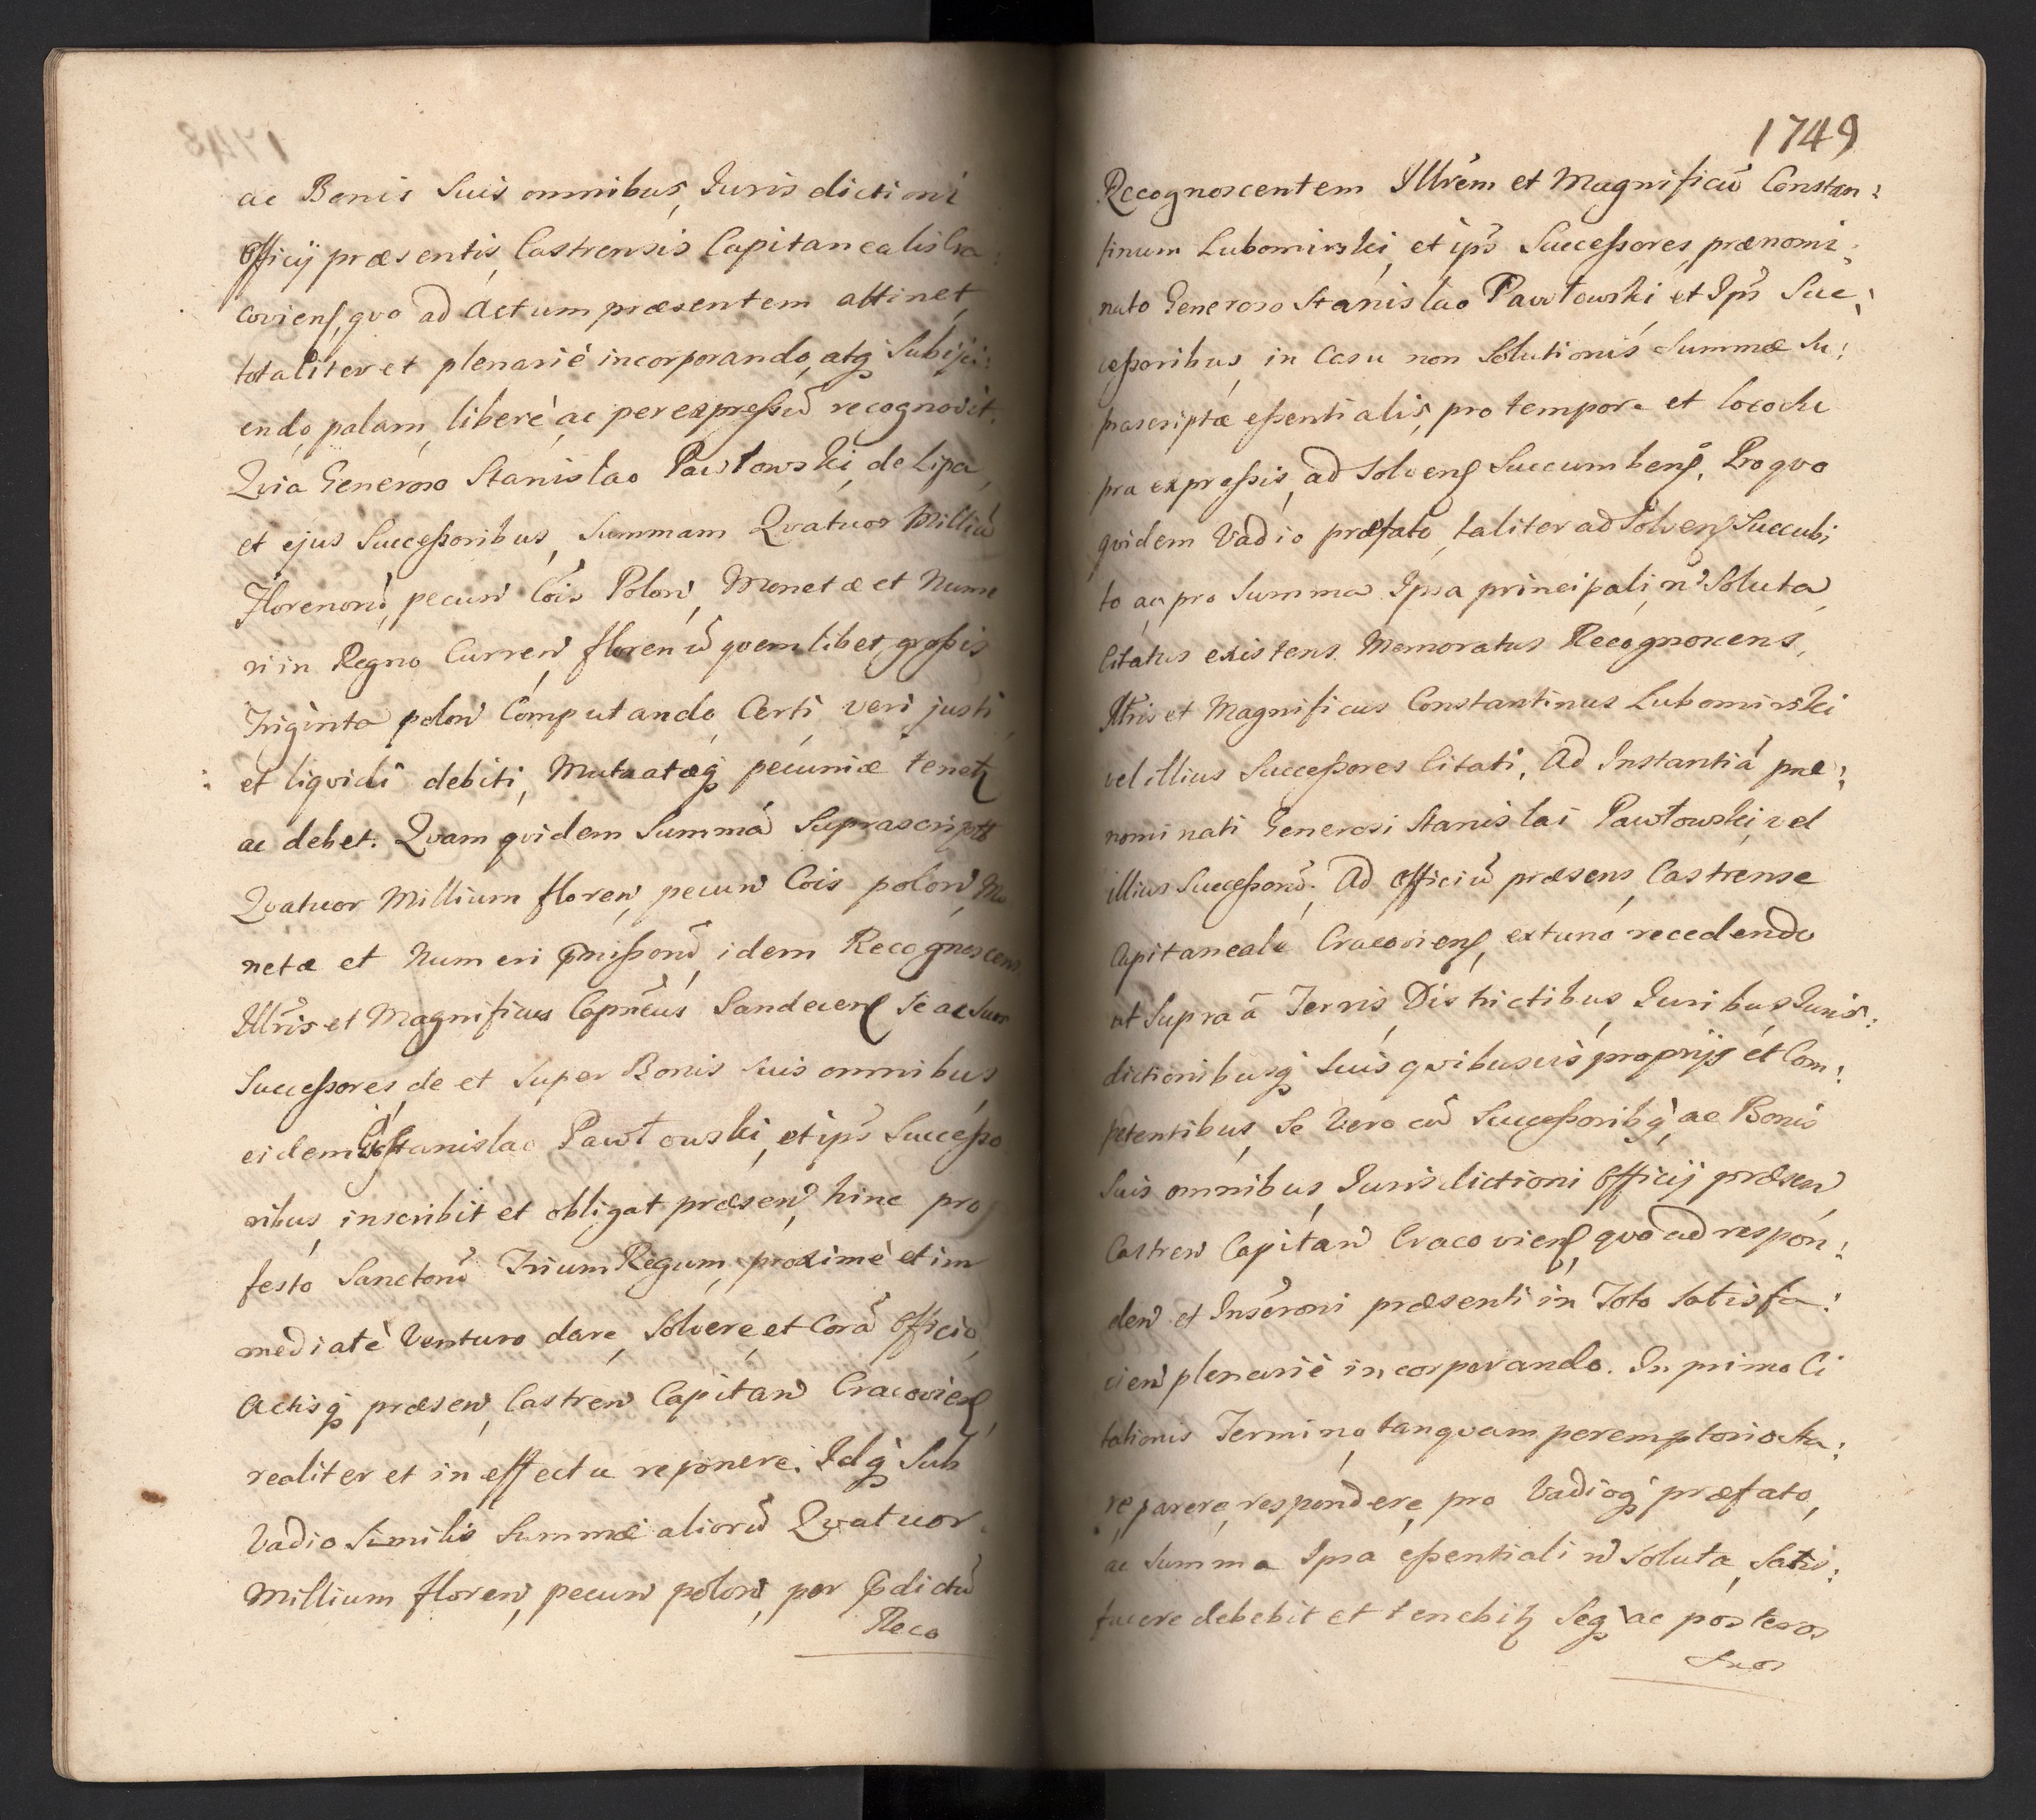 ac Bonis Suis omnibus, Jurisdictioni
Officij præsentis, Castrensis Capitanealis Cra:
coviens, qvo ad Actum præsentem attinet,
totaliter et plenariè incorporando, atq Subijci:
endo, palam, liberè, ac per expressũ recognovit.
Qvia Generoso Stanislao Pawłowski, de Lipa,
et ejus Successoribus, Summam Qvatuor Milliũ
Florenorũ, pecuñ Cõis Poloñ, Monetæ et Nume
ri in Regno Curreñ, florenũ qvemlibet, grossis
Triginta poloñ Computando, Certi, veri, justi,
et liqvidi debiti, Mutuatæq pecuniæ tenetʒ
ac debet. Qvam qvidem Summã Suprascriptã
Qvatuor Millium floreñ, pecuñ Cois poloñ, Mo
netæ et Numeri p̃missorũ, idem Recognoscens
Illr̃is et Magnificus Capñeus Sandecens Se ac Suos
Successores, de et Super Bonis Suis omnibus,
eidem Gso Stanislao Pawłowski, et ips Successo
ribus, inscribit et obligat præseñ, hinc pro
festo Sanctorũ Trium Regum, proximè et im
mediatè Venturo dare, Solvere, et Corã Officio,
Actisq præseñ, Castreñ Capitañ Cracoviens,
realiter et in effectu reponere. Idq Sub
Vadio Similis Summæ aliorũ Qvatuor
Millium floreñ, pecuñ poloñ, per p̃dictũ
Reco
1749
Recognoscentem Illrem et Magnificũ Constan:
tinum Lubomirski, et ips Successores, prænomi:
nato Generoso Stanislao Pawłowski, et Ips Suc:
cessoribus, in Casu non Solutionis Summæ Su:
prascriptæ essentialis, pro tempore et loco Su
pra expressis, ad Solvens Succumbens. Pro qvo
qvidem Vadio præfato, taliter ad Solvens Succubi
to, ac pro Summa Ipsa principali, ñ Soluta,
Citatus existens Memoratus Recognoscens,
Illris et Magnificus Constantinus Lubomirski
vel illius Successores Citati, Ad Instantiã præ:
nominati Generosi Stanislai Pawłowski, vel
illius Successorũ. Ad Officiũ præsens, Castrense
Capitaneale Cracoviens, extunc recedendo
ut Supra ã Terris, Districtibus, Juribus Juris:
dictionibusq Suis qvibusvis proprijs et Com:
petentibus, Se Vero cũ Successoribq, ac Bonis
Suis omnibus, Jurisdictioni Officij præseñ,
Castreñ Capitañ Cracoviens, qvo ad respon:
deñ et Inscroni præsenti in Toto Satisfa:
cieñ plenariè incorporando. In primo Ci
tationis Termino, tanqvam peremptorio sta:
re, parere, respondere, pro Vadioq præfato,
ac Summa Ipsa essentiali ñ Soluta, Satis:
facere debebit et tenebitʒ Seq ac posteros
Suos